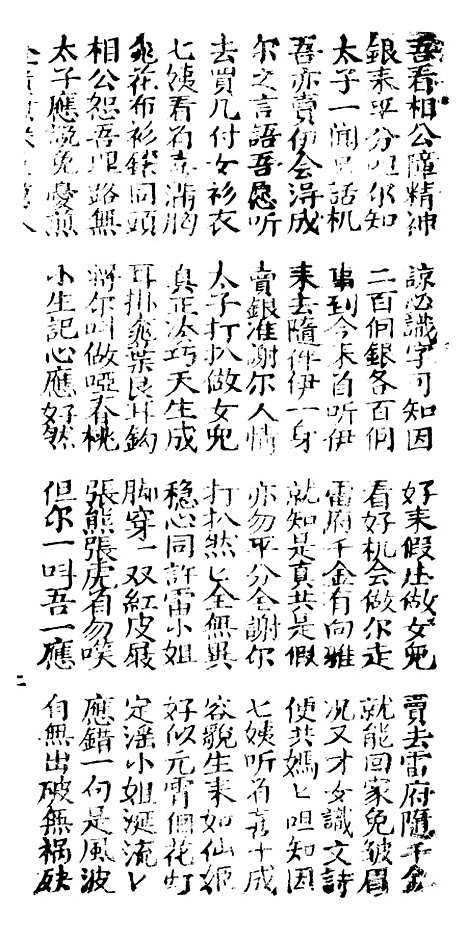 吾看相公障精神　諒必識字可知因　好来假庄做女兒　賣去雷府隨千金
銀来平分哩尔知　二百個銀各百個　看好机会做尔走　就能回家免皺眉
太子一闻只話机　事到今来自听伊　雷府千金有向雅　况又才女識文詩
吾亦賣伊会得成　来去隨伴伊一身　就知是真共是假　便共媽匕呾知因
尔之言語吾愿听　賣銀准謝尔人情　亦勿平分全謝尔　七姨听着喜十成
去買几付女衫衣　太子打扒做女兒　打扒然匕全無異　容貌生来如仙姬
七姨看着喜滿胸　真正法巧天生成　穩心同許雷小姐　好似元宵個花灯
桃花布衫同頭　耳掛桃葉艮耳鈎　脚穿一双紅皮屐　定滛小姐涎流匕
相公怨吾理路無　將尔叫做啞春桃　張熊張虎勿唉　應錯一句是風波
太子應說免憂煎　小生記心應好然　但尔一叫吾一應　自無出破無祸缺
二